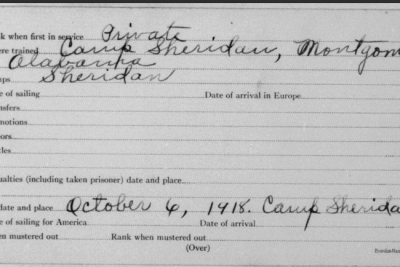 k when first in service Private
ere trained Camp Sheridan, Montgom
Alabama
ps Sheridan
e of sailing Date of arrival in Europe
nsfers
motions
ors
tles
ualties (including taken prisoner) date and place
date and place October 6, 1918. Camp Sherida
e of sailing for America Date of arrival
en mustered out Rank when mustered out
(Over)